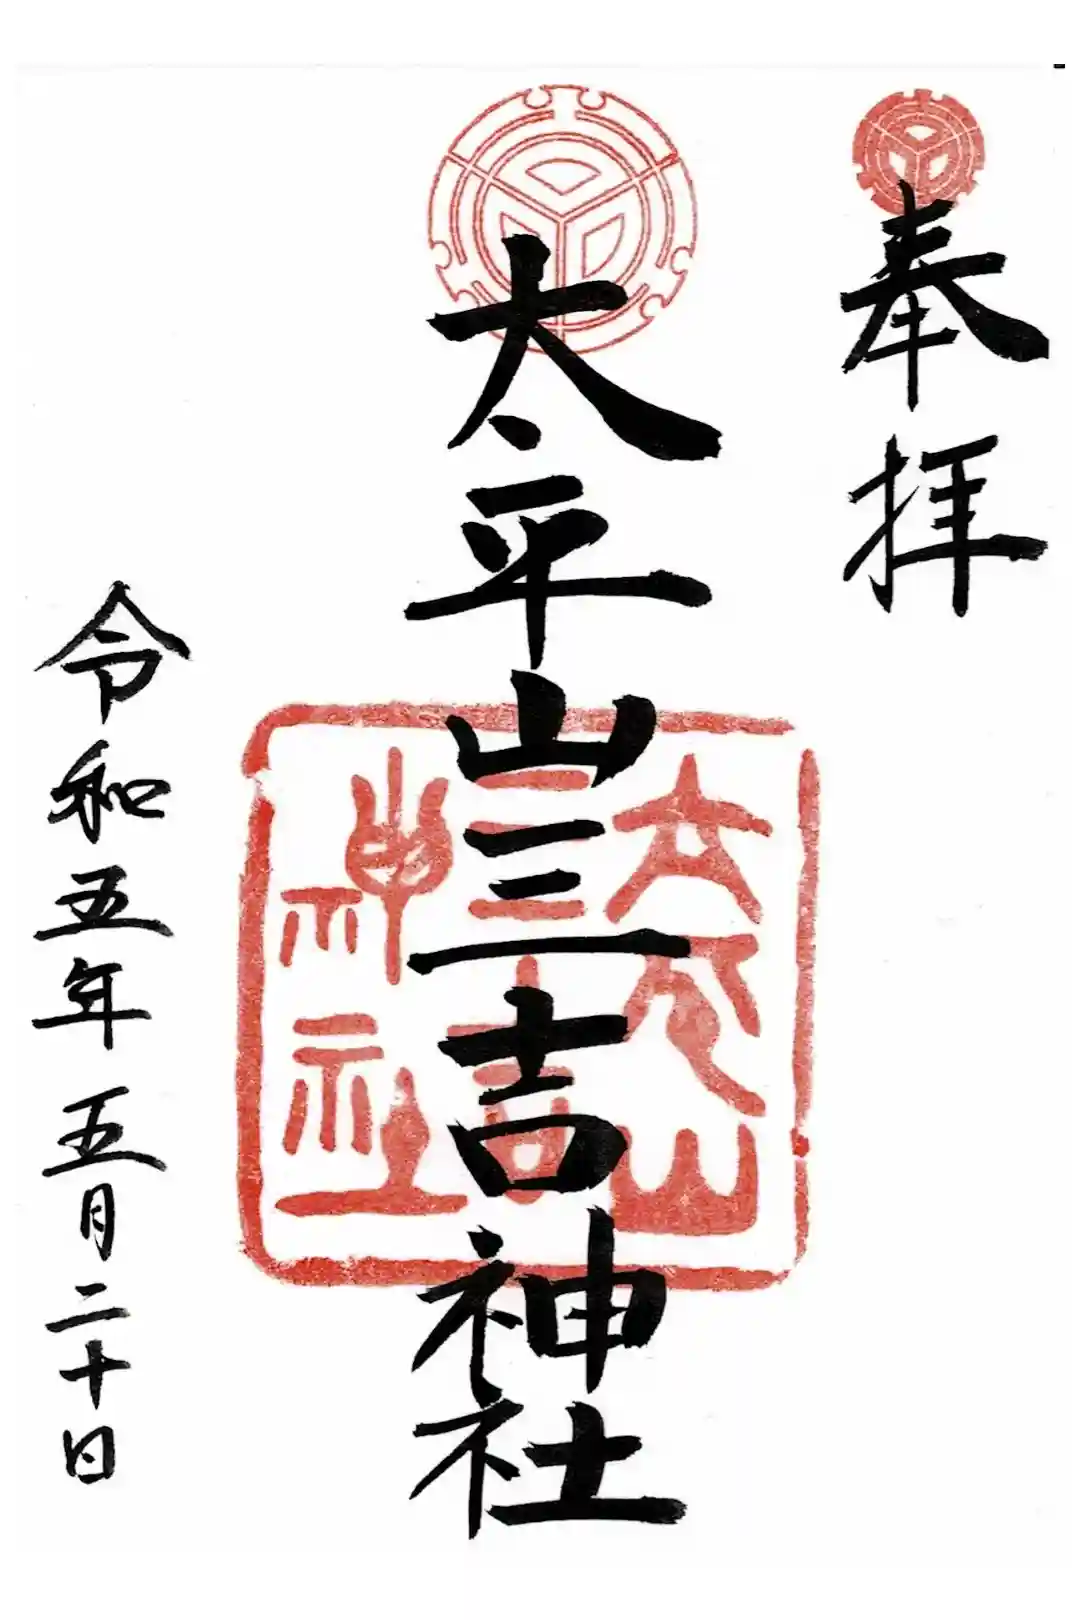 奉拝
太平山三吉神社
太平山
三吉
神社
令和五年五月二十日